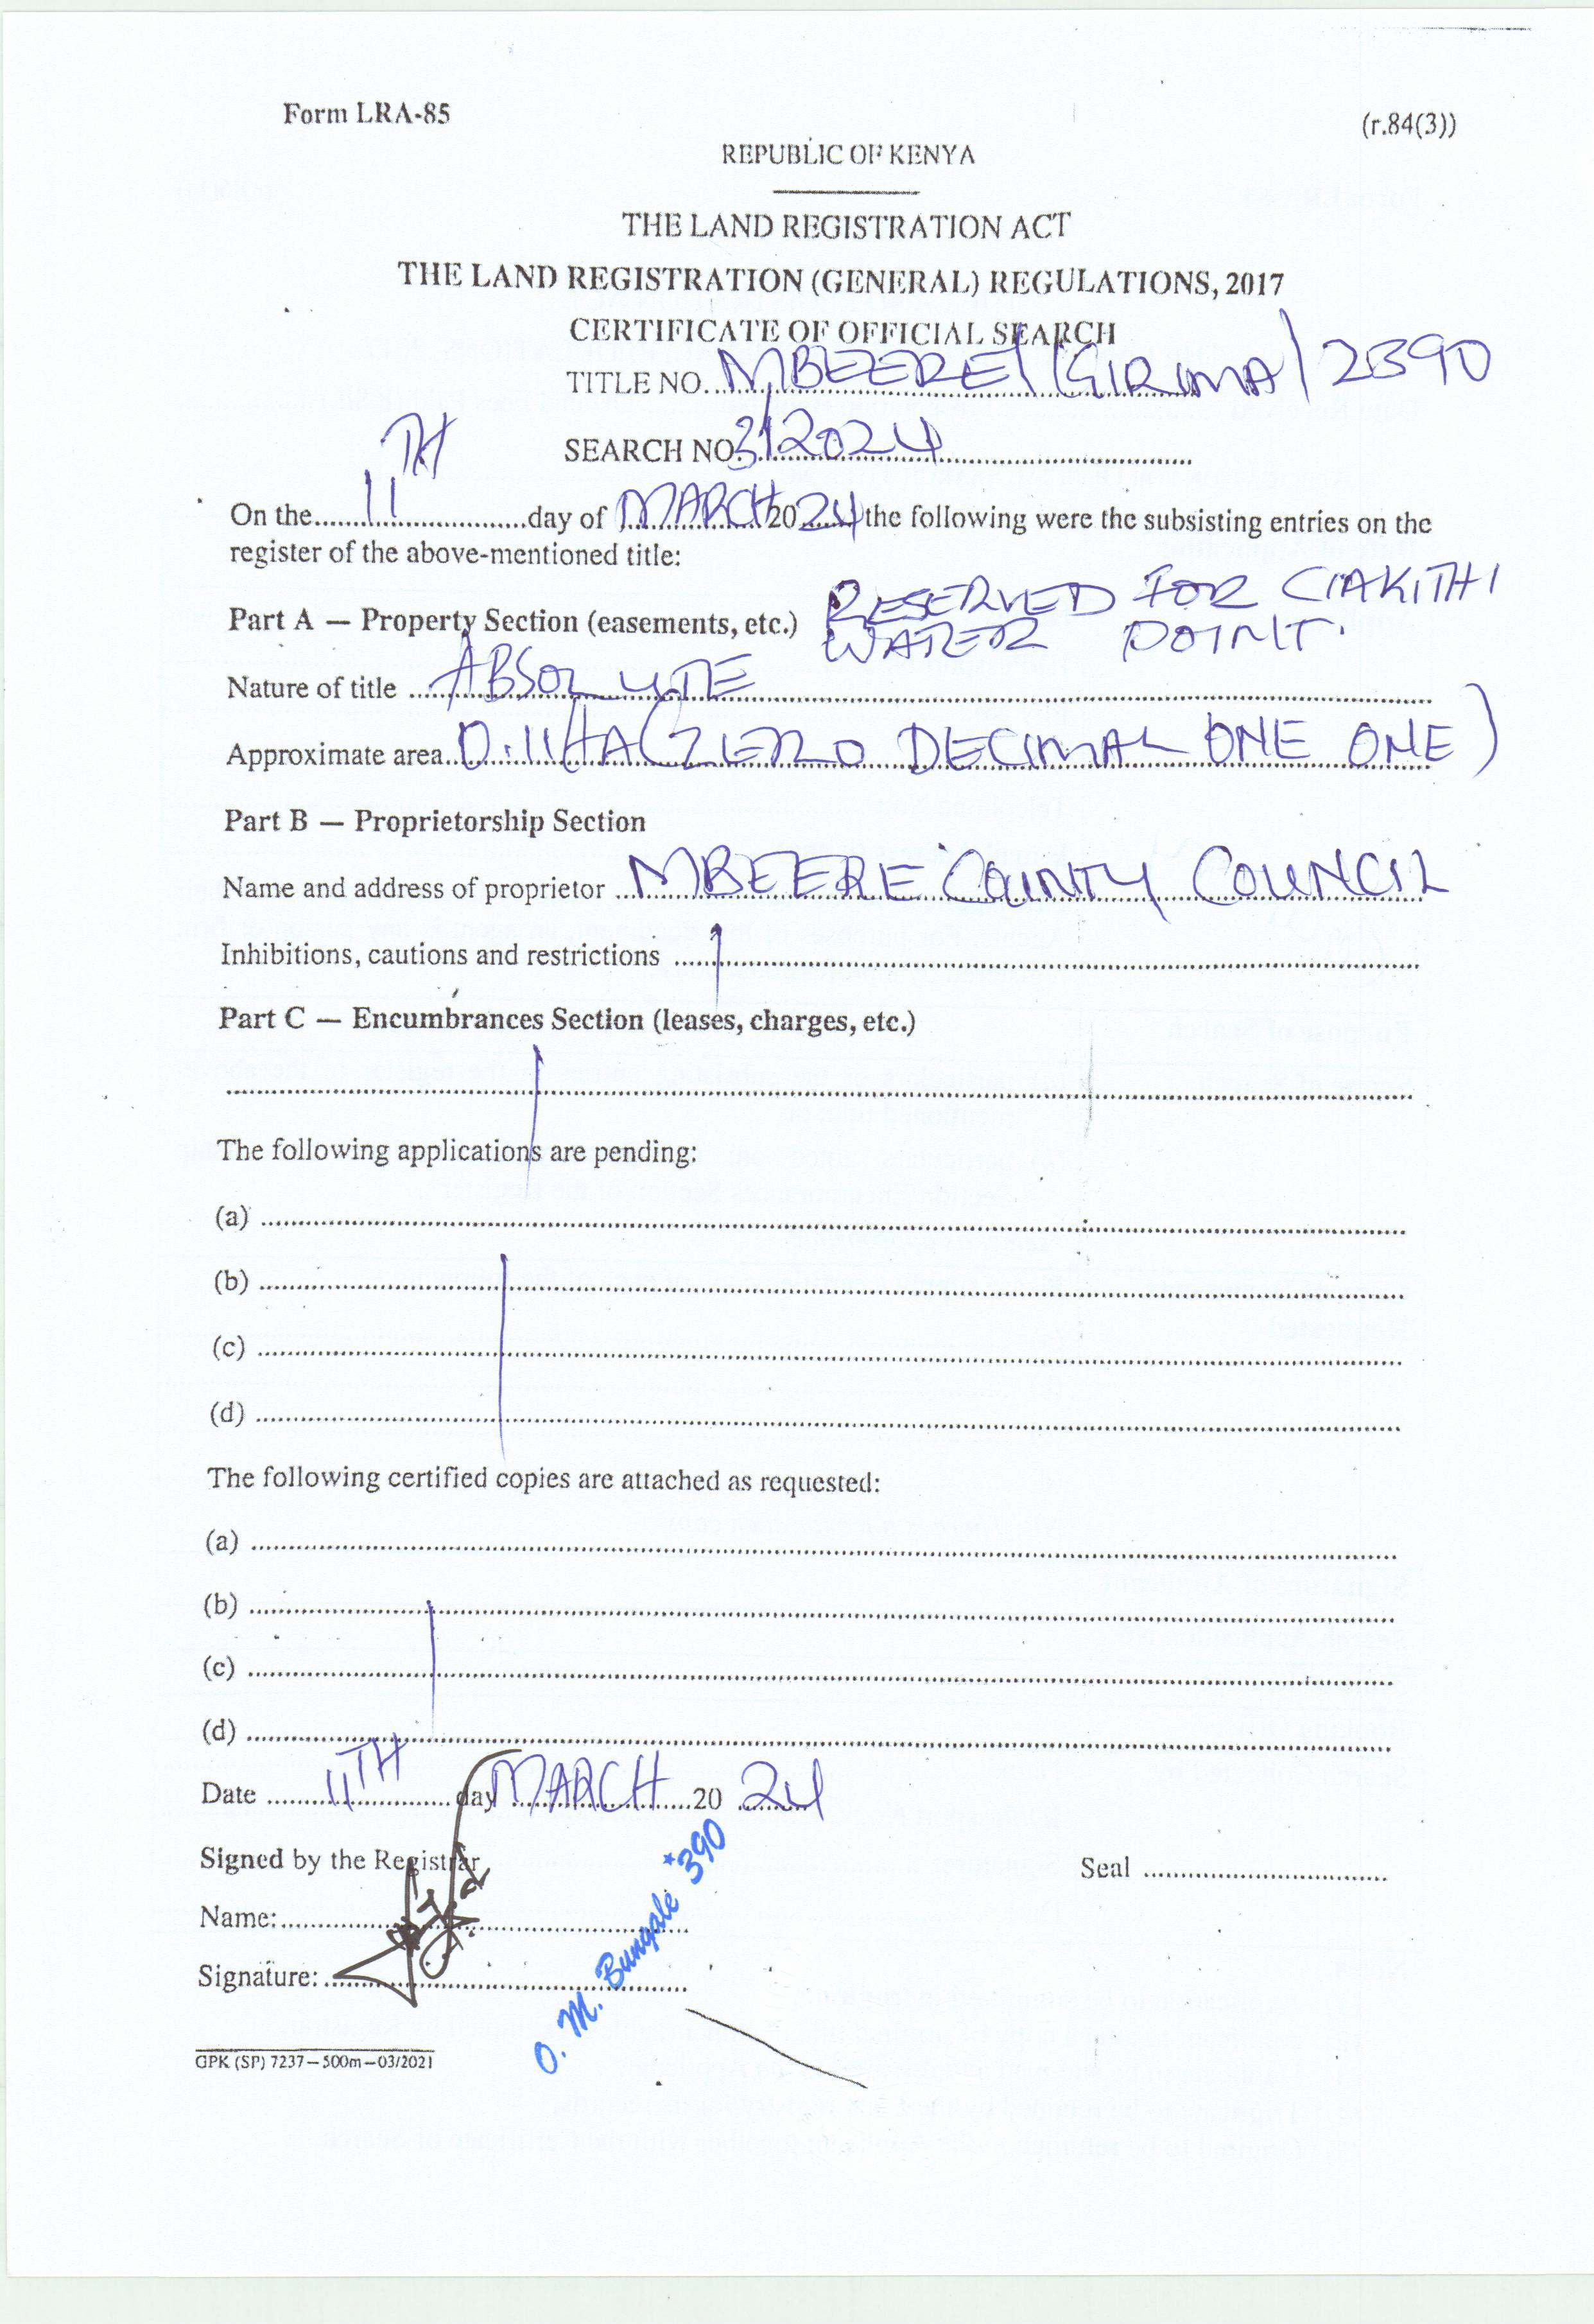 Form LRA-85
(r.84(3))
REPUBLIC OF KENYA
THE LAND REGISTRATION ACT
THE LAND REGISTRATION (GENERAL) REGULATIONS, 2017
CERTIFICATE OF OFFICIAL SEARCH
TITLE NO. MBEERE/KIRIMA/2390
SEARCH NO. 3/2024
On the 11TH day of MARCH 2024 the following were the subsisting entries on the
register of the above-mentioned title:
Part A — Property Section (easements, etc.) RESERVED FOR CIAKITHI
WATER POINT.
Nature of title ABSOLUTE
Approximate area 0.11HA (ZERO DECIMAL ONE ONE)
Part B — Proprietorship Section
Name and address of proprietor MBEERE COUNTY COUNCIL
Inhibitions, cautions and restrictions
Part C — Encumbrances Section (leases, charges, etc.)
The following applications are pending:
(a)
(b)
(c)
(d)
The following certified copies are attached as requested:
(a)
(b)
(c)
(d)
Date 11TH day MARCH 20 24
Signed by the Registrar
Seal
Name:
Signature:
O. M. Bungale *390
GPK (SP) 7237—500m—03/2021